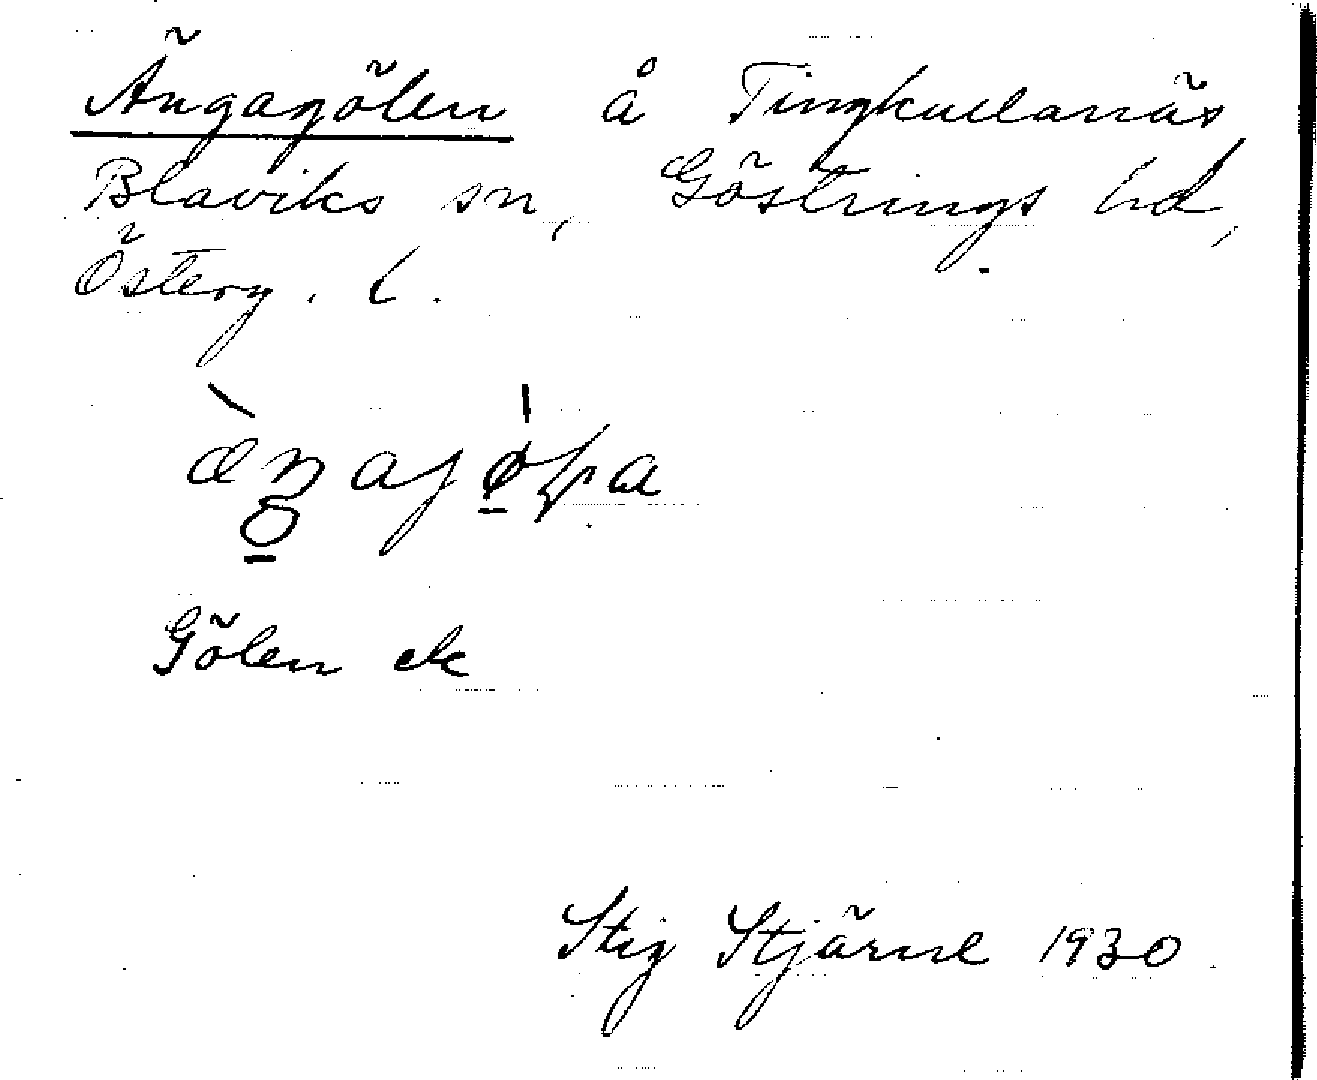 Ängagölen å Tingkullanäs
Blaviks sn, Göstrings hd,
Österg. l.
Gölen ek
Stig Stjärne 1930